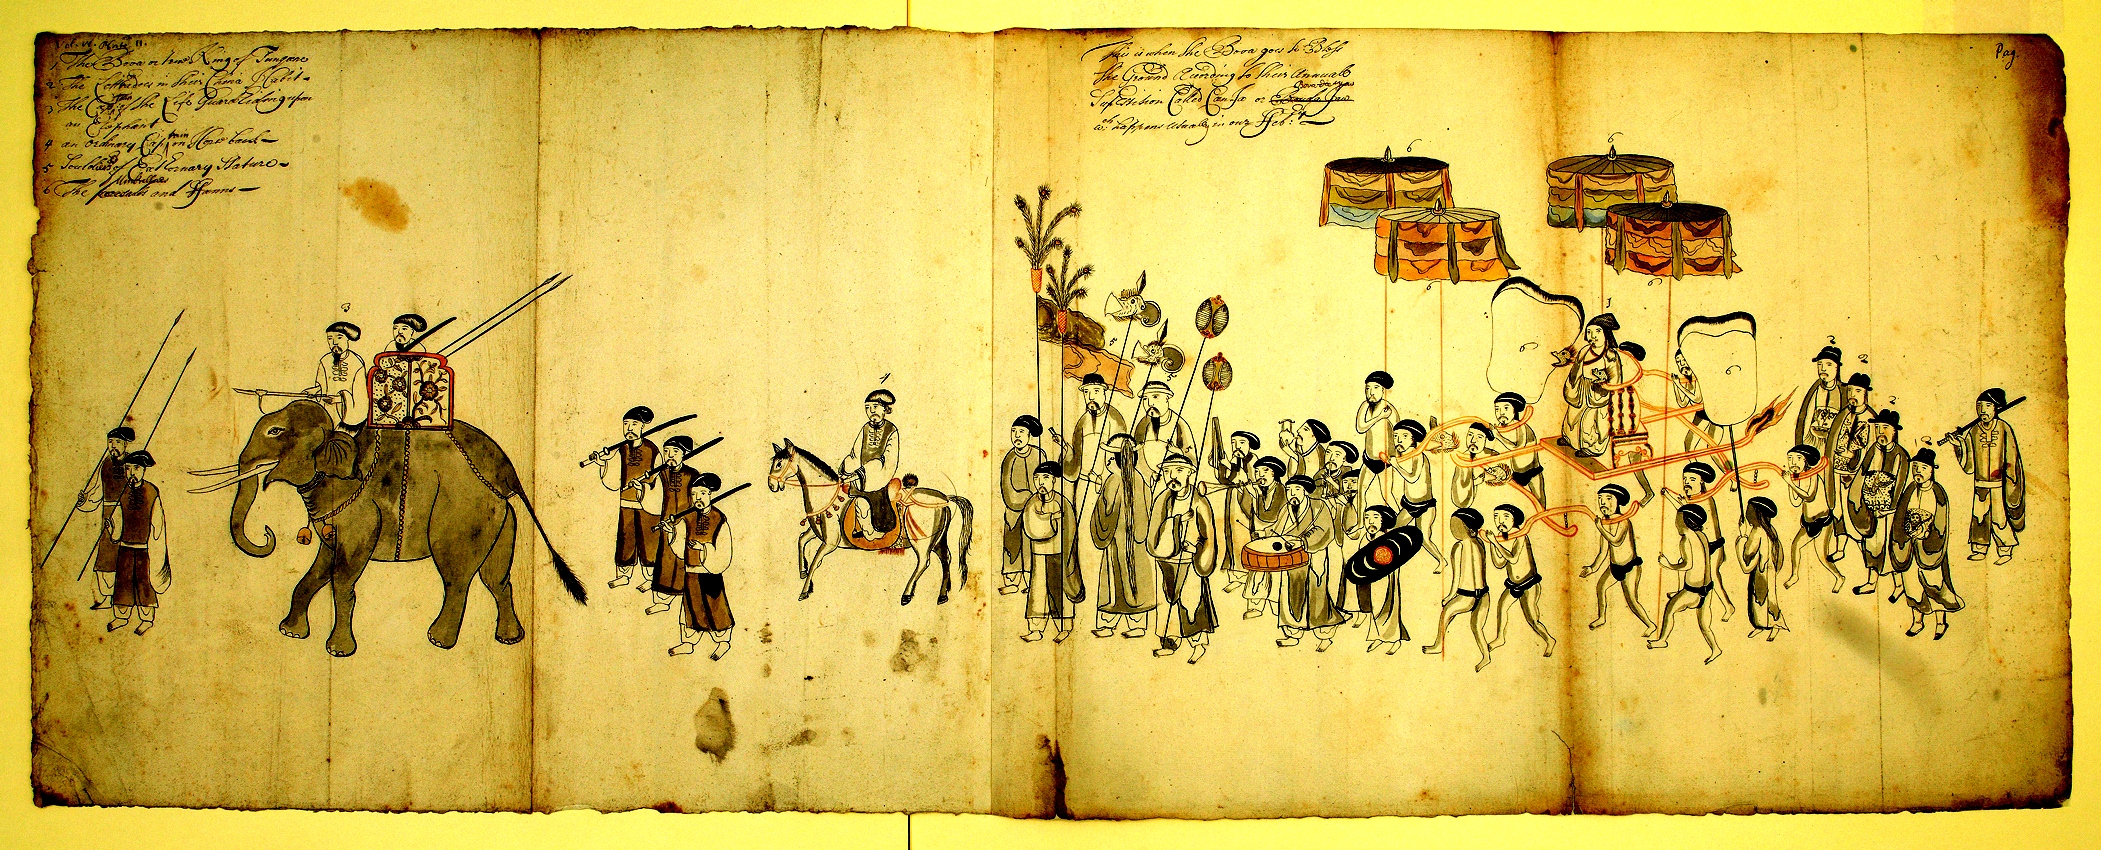 Vol. VI. Plate 11.
1 The Bova or true King of Tunqueen
2 The Litteradoes in their China Habit
3 The Capt of the Life Guard Riding upon
an Elophant
4 an ordinary Captain on Horsback
5 Souldiers of Extternary Stature
6 The and Fanns
This is when the Bova goes to Bless
the Ground According to their Annuall
Superstition Called Can Ja or Bova Dayaw
wch happens Usually in our Feb:
Pag.
1
2
2
2
2
3
4
5
5
6
6
6
6
6
6